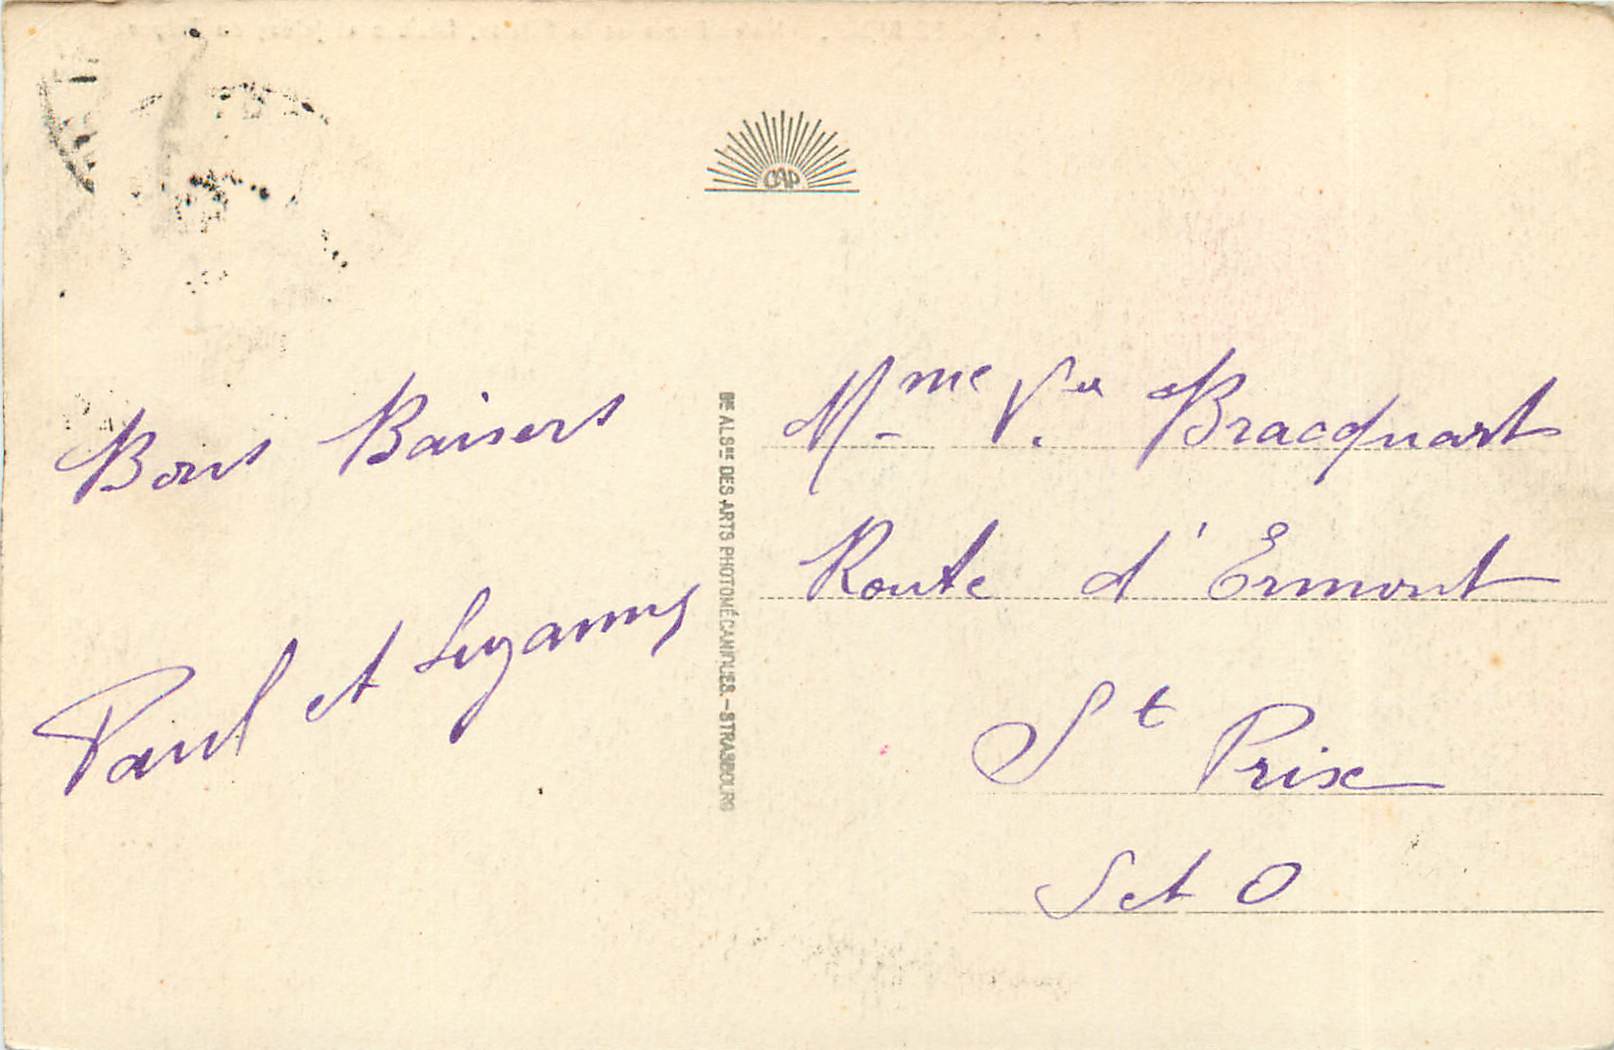 CAP
Bons Baisers
Paul et Suzanne
Sté ALSNE DES ARTS PHOTOMÉCANIQUES. – STRASBOURG
Mme Vve Bracquart
Route d'Ermont
St Prix
S et O